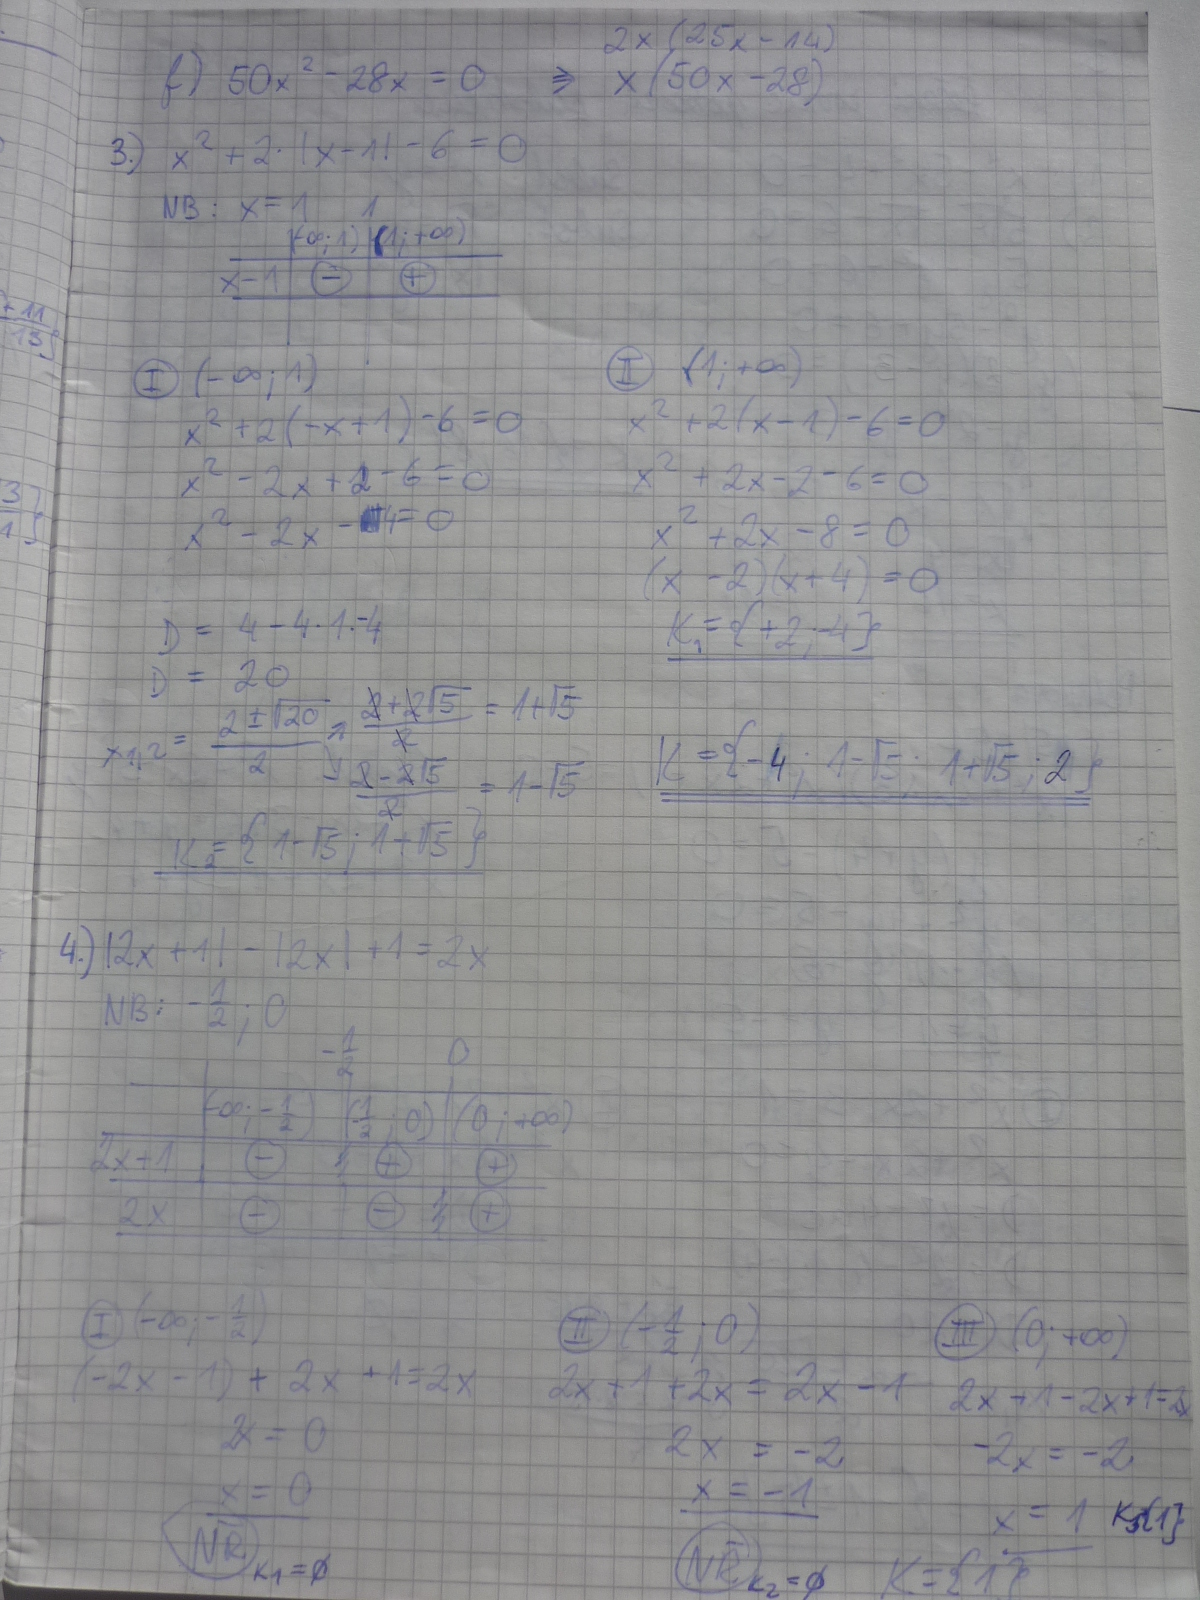 2x (25x - 14)
f) 50x² - 28x = 0 ⇒ x (50x - 28)
3.) x² + 2·|x-1| - 6 = 0
NB: x = 1 1
(-∞;1) (1;+∞)
x-1 - +
I (-∞;1)
x² + 2(-x+1) - 6 = 0
x² - 2x + 2 - 6 = 0
x² - 2x - 4 = 0
D = 4 - 4·1·-4
D = 20
x1,2 = (2 ± √20)/2 → (2+2√5)/2 = 1+√5
→ (2-2√5)/2 = 1-√5
K2 = {1-√5; 1+√5}
II (1;+∞)
x² + 2(x-1) - 6 = 0
x² + 2x - 2 - 6 = 0
x² + 2x - 8 = 0
(x - 2)(x+4) = 0
K1 = {+2; -4}
K = {-4; 1-√5; 1+√5; 2}
4.) |2x+1| - |2x| + 1 = 2x
NB: -1/2; 0
-1/2 0
(-∞; -1/2) (-1/2; 0) (0; +∞)
2x+1 - + +
2x - - +
I (-∞; -1/2)
(-2x - 1) + 2x + 1 = 2x
2x = 0
x = 0
NŘ K1 = ∅
II (-1/2; 0)
2x + 1 + 2x = 2x - 1
2x = -2
x = -1
NŘ K2 = ∅
III (0; +∞)
2x + 1 - 2x + 1 = 2x
-2x = -2
x = 1 K3{1}
K = {1}
+11
13}
3}
1}